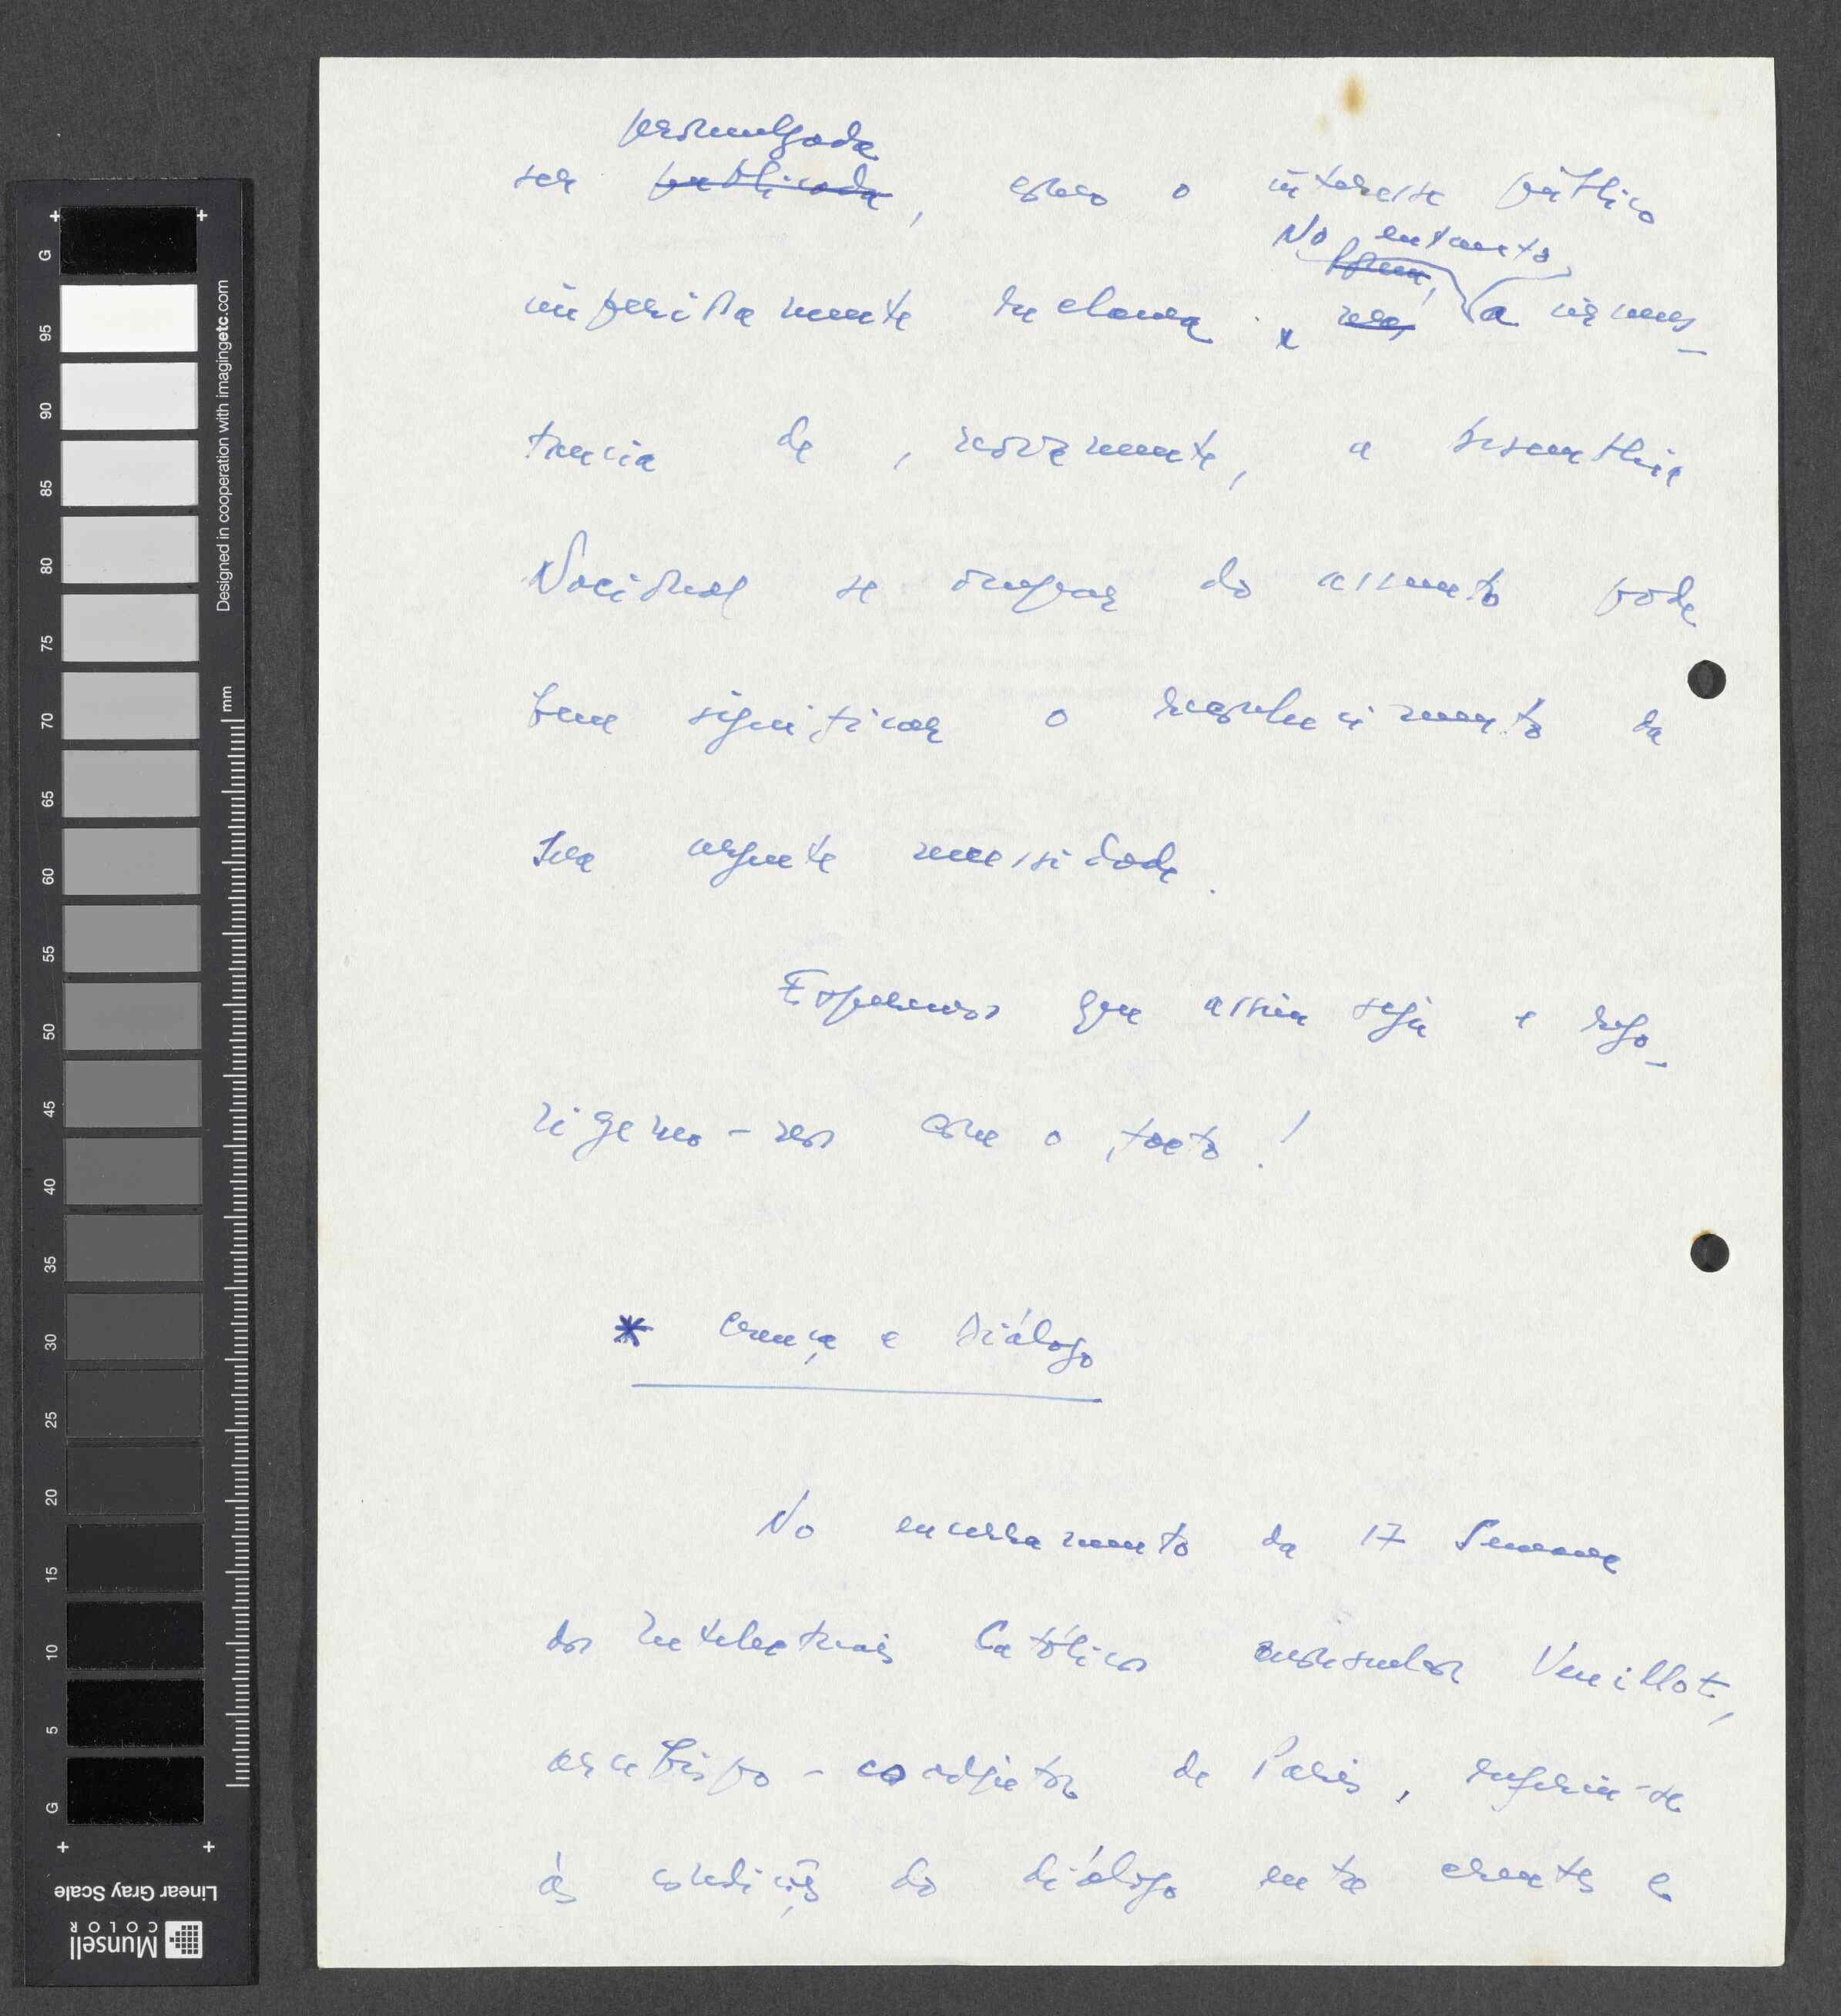 promulgada
ser publicada, como o interesse público
No entanto
Porém,
imperiosamente reclama. mas, a circuns-
tancia de, novamente, a Assembleia
Nacional se ocupar do assunto pode
bem significar o reconhecimento da
sua urgente necessidade.
Esperemos que assim seja e rego-
zigemo-nos com o facto!
* Crença e Diálogo
No encerramento da 17 Semana
dos Intelectuais Católicos monsenhor Veuillot,
arcebispo-coadjutor de Paris, referiu-se
às condições do diálogo entre crentes e
+ +
G 95 90 85 80 75 70 65 60 55 50 45 40 35 30 25 20 15 10 5 G
Designed in cooperation with imagingetc.com
mm
+ +
Linear Gray Scale
Munsell
COLOR